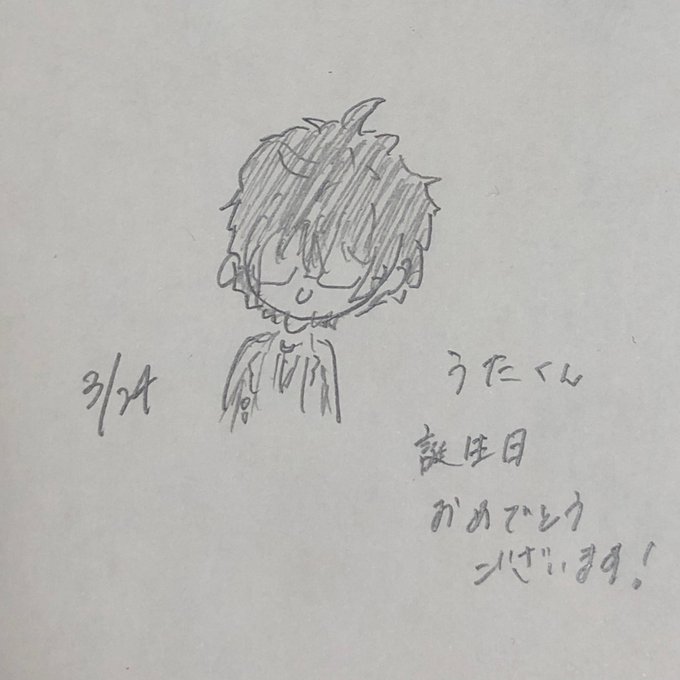 3/24
うたくん
誕生日
おめでとう
ございます!